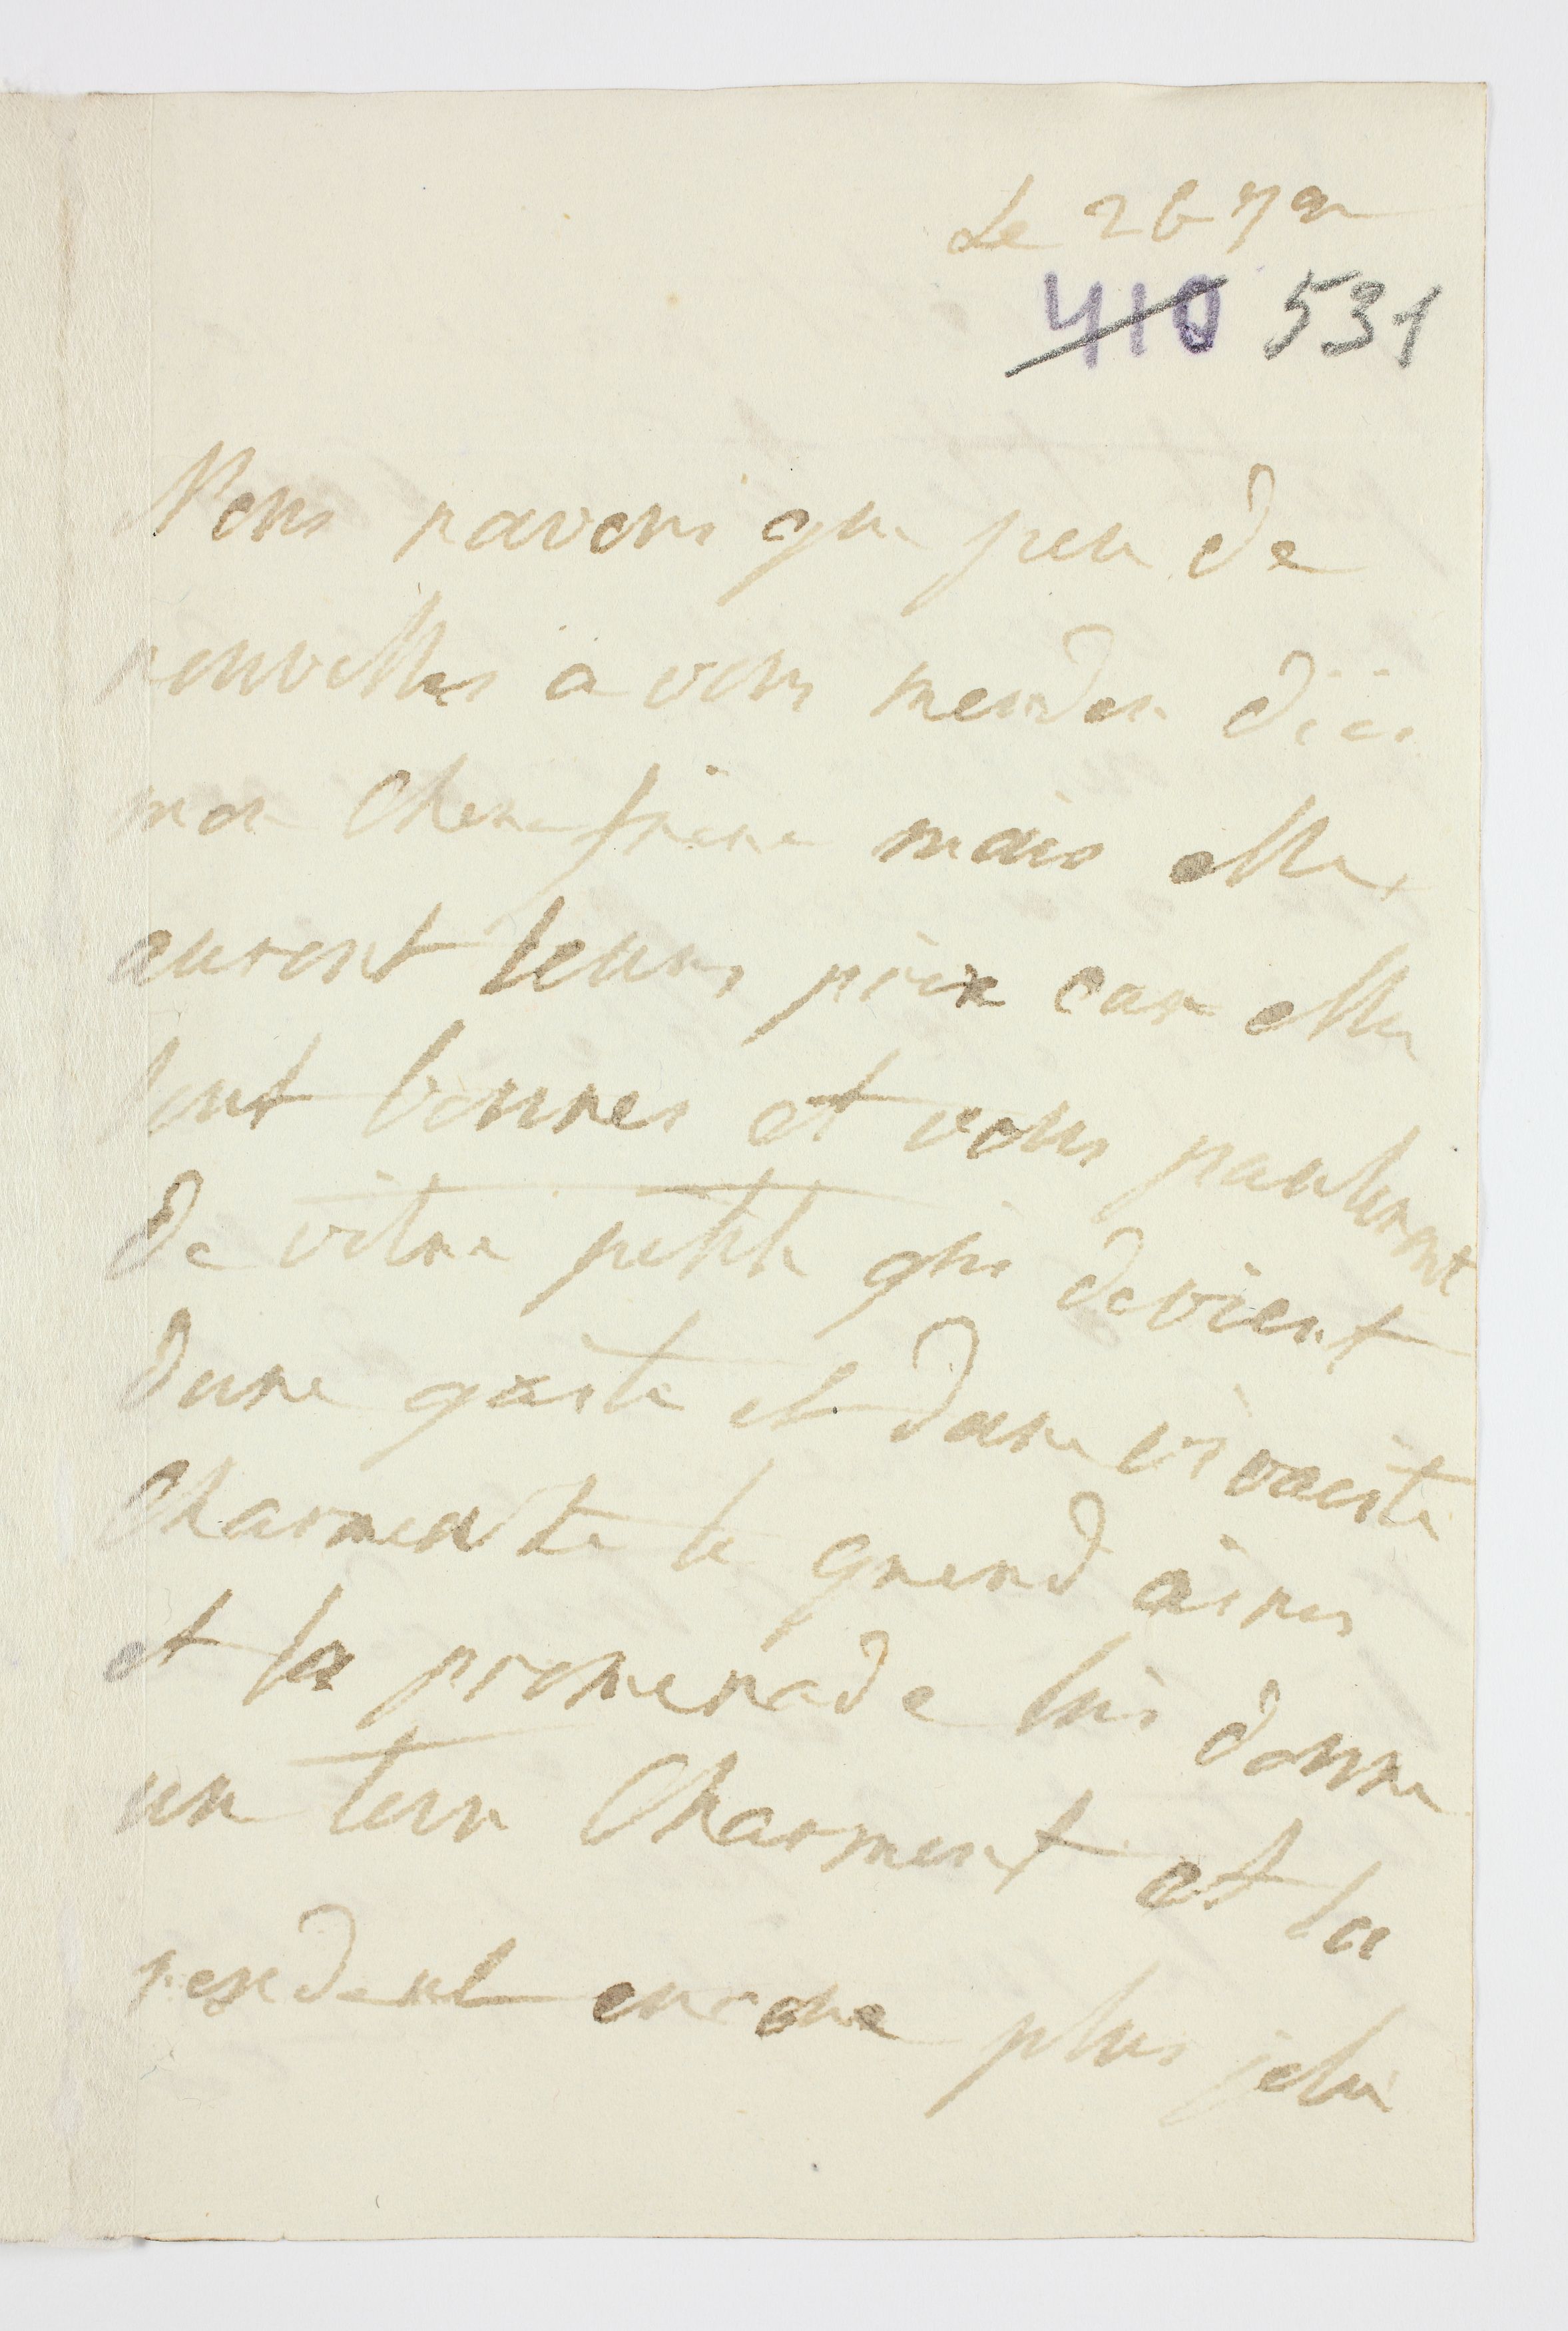 Le 26 7re
410 531
Nous navons que peu de
nouvelles a vous mender dici
mon Chere frere mais elles
auront leurs prix car elle
sont bonnes et vous parleront
de votre petite qui devient
dune gaite et dune vivacite
Charmente le grend aires
et la promenade lui donne
un tein Charment et la
rendent encore plus jolie